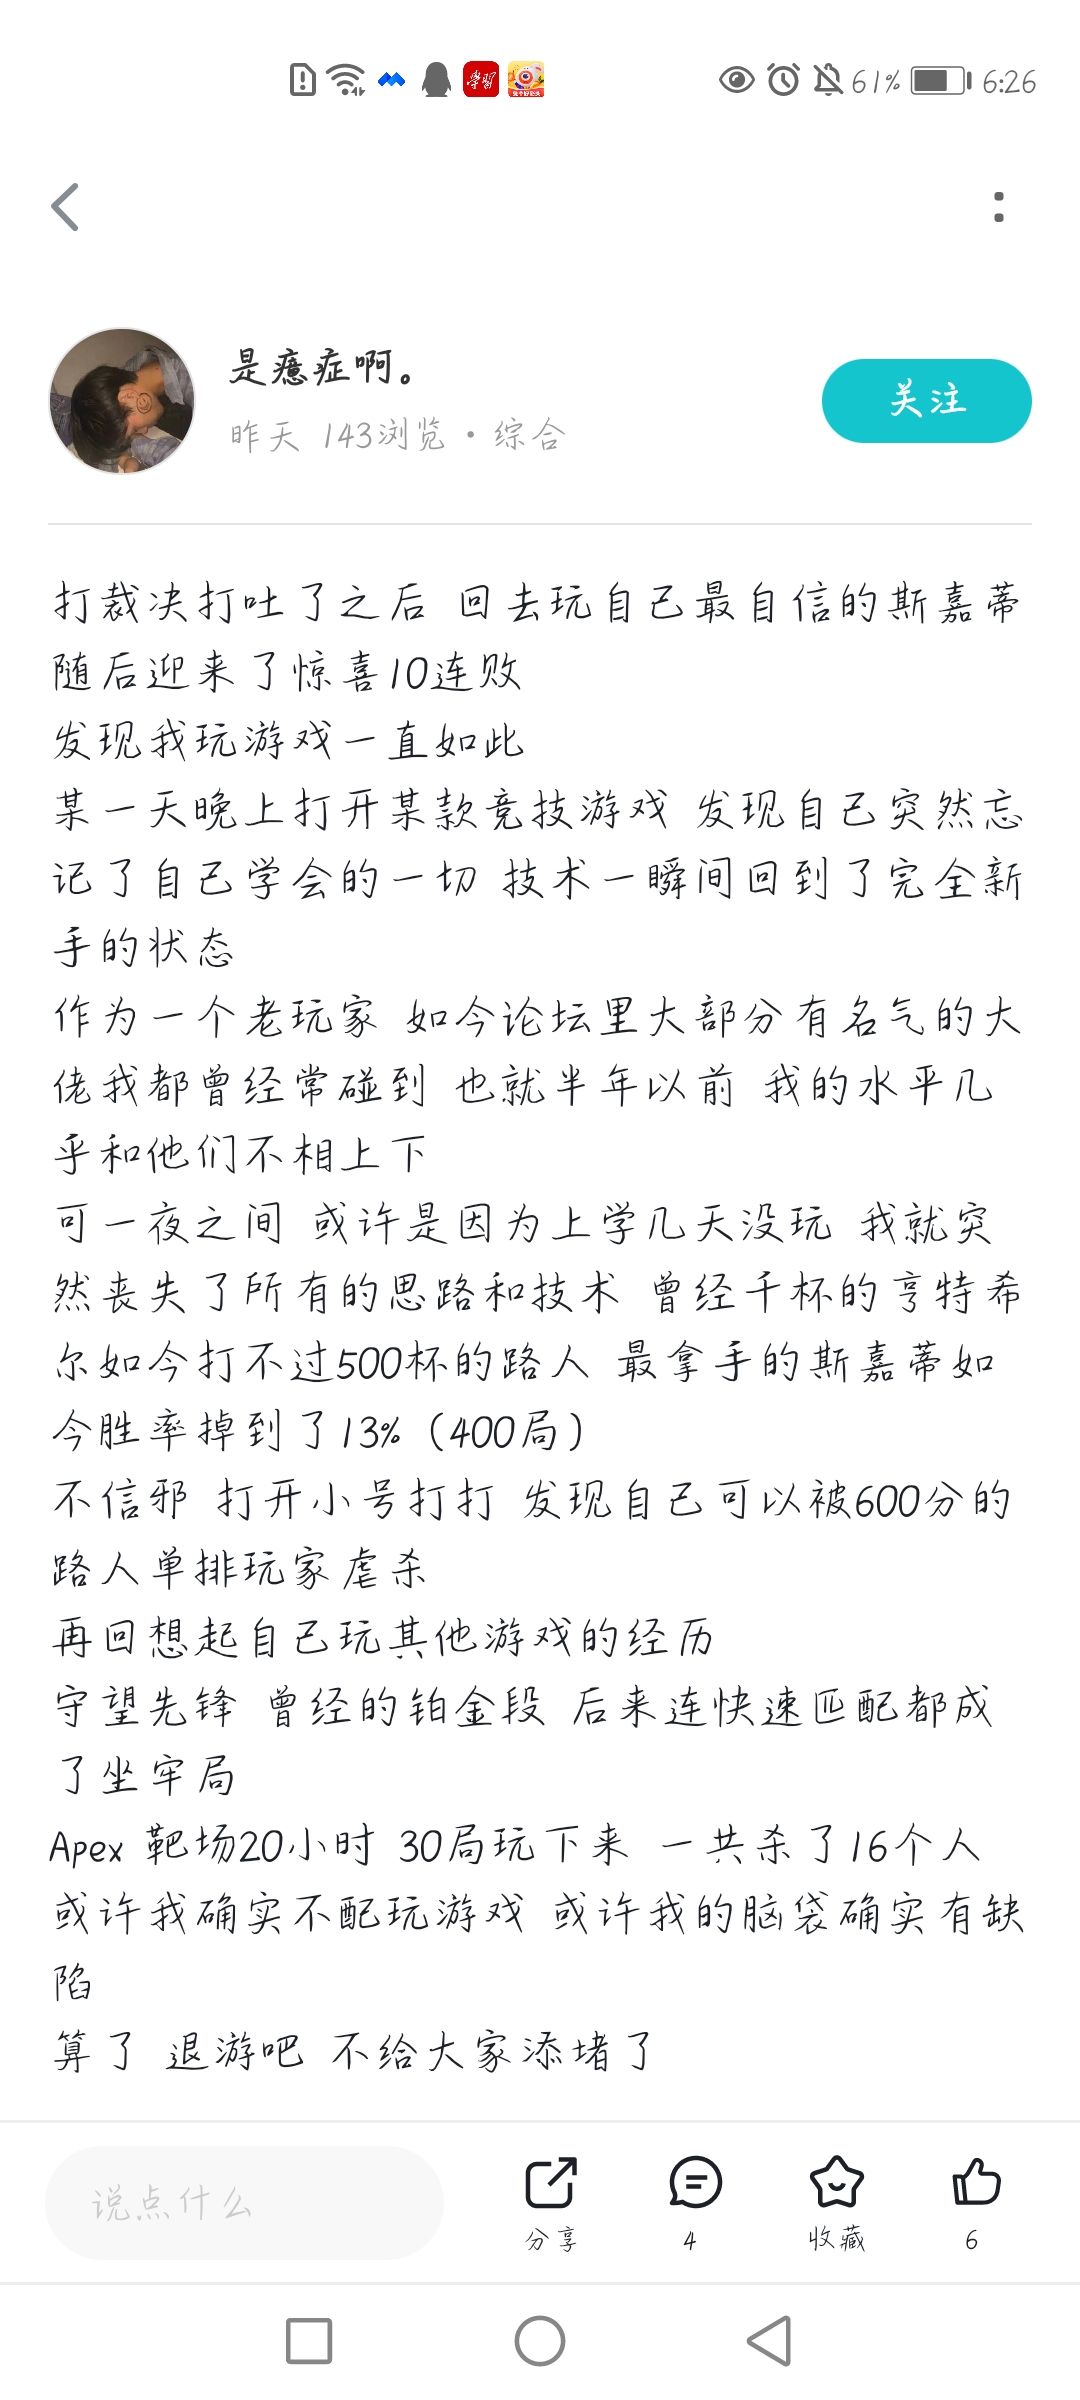 61% 6:26
是癔症啊。
关注
昨天 143浏览·综合
打裁决打吐了之后 回去玩自己最自信的斯嘉蒂
随后迎来了惊喜10连败
发现我玩游戏一直如此
某一天晚上打开某款竞技游戏 发现自己突然忘
记了自己学会的一切 技术一瞬间回到了完全新
手的状态
作为一个老玩家 如今论坛里大部分有名气的大
佬我都曾经常碰到 也就半年以前 我的水平几
乎和他们不相上下
可一夜之间 或许是因为上学几天没玩 我就突
然丧失了所有的思路和技术 曾经千杯的亨特希
尔如今打不过500杯的路人 最拿手的斯嘉蒂如
今胜率掉到了13%（400局）
不信邪 打开小号打打 发现自己可以被600分的
路人单排玩家虐杀
再回想起自己玩其他游戏的经历
守望先锋 曾经的铂金段 后来连快速匹配都成
了坐牢局
Apex 靶场20小时 30局玩下来 一共杀了16个人
或许我确实不配玩游戏 或许我的脑袋确实有缺
陷
算了 退游吧 不给大家添堵了
说点什么
分享
4
收藏
6